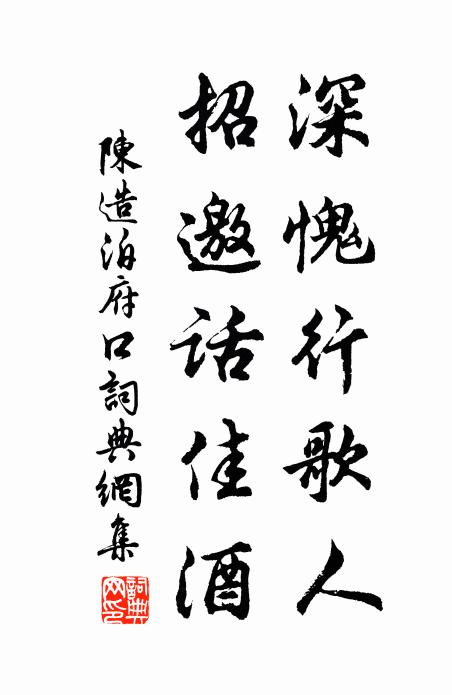 深愧行歌人
招邀話佳酒
陳造泊府口詞典網集
詞典網印